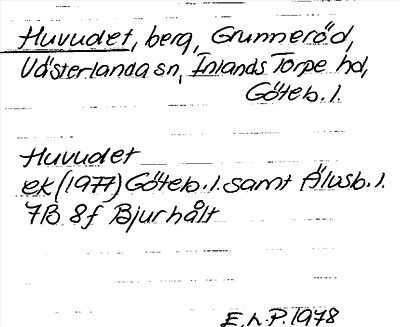 Huvudet, berg, Grunneröd,
Västerlanda sn, Inlands Torpe hd,
Göteb. l.
Huvudet
ek (1977) Göteb. l. samt Älvsb. l.
7B 8f Bjurhålt
E.h.P. 1978